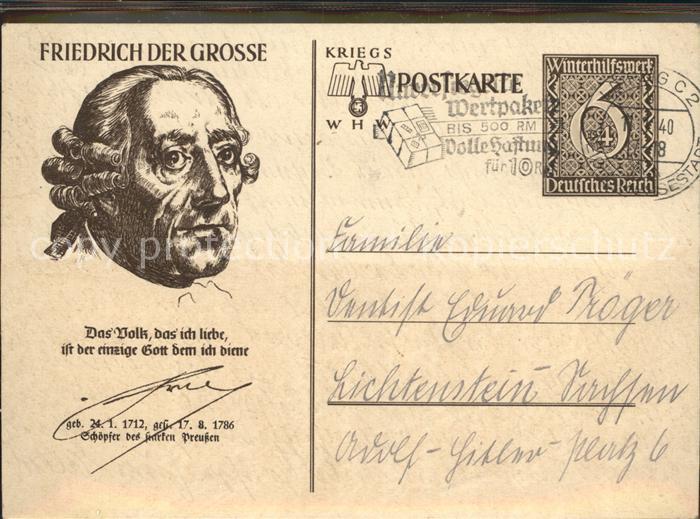 FRIEDRICH DER GROSSE
Das Volk, das ich liebe,
ist der einzige Gott dem ich diene
geb. 24. 1. 1712, gest. 17. 8. 1786
Schöpfer des starken Preußen
KRIEGS
POSTKARTE
W H W
Wertpake
BIS 500 RM
Volle Haftun
für 10 R
Winterhilfswerk
6
Deutsches Reich
40
8
Familie
Dentist Eduard Tröger
Lichtenstein Sachsen
Adolf-Hitler-platz 6
copy protection Kopierschutz